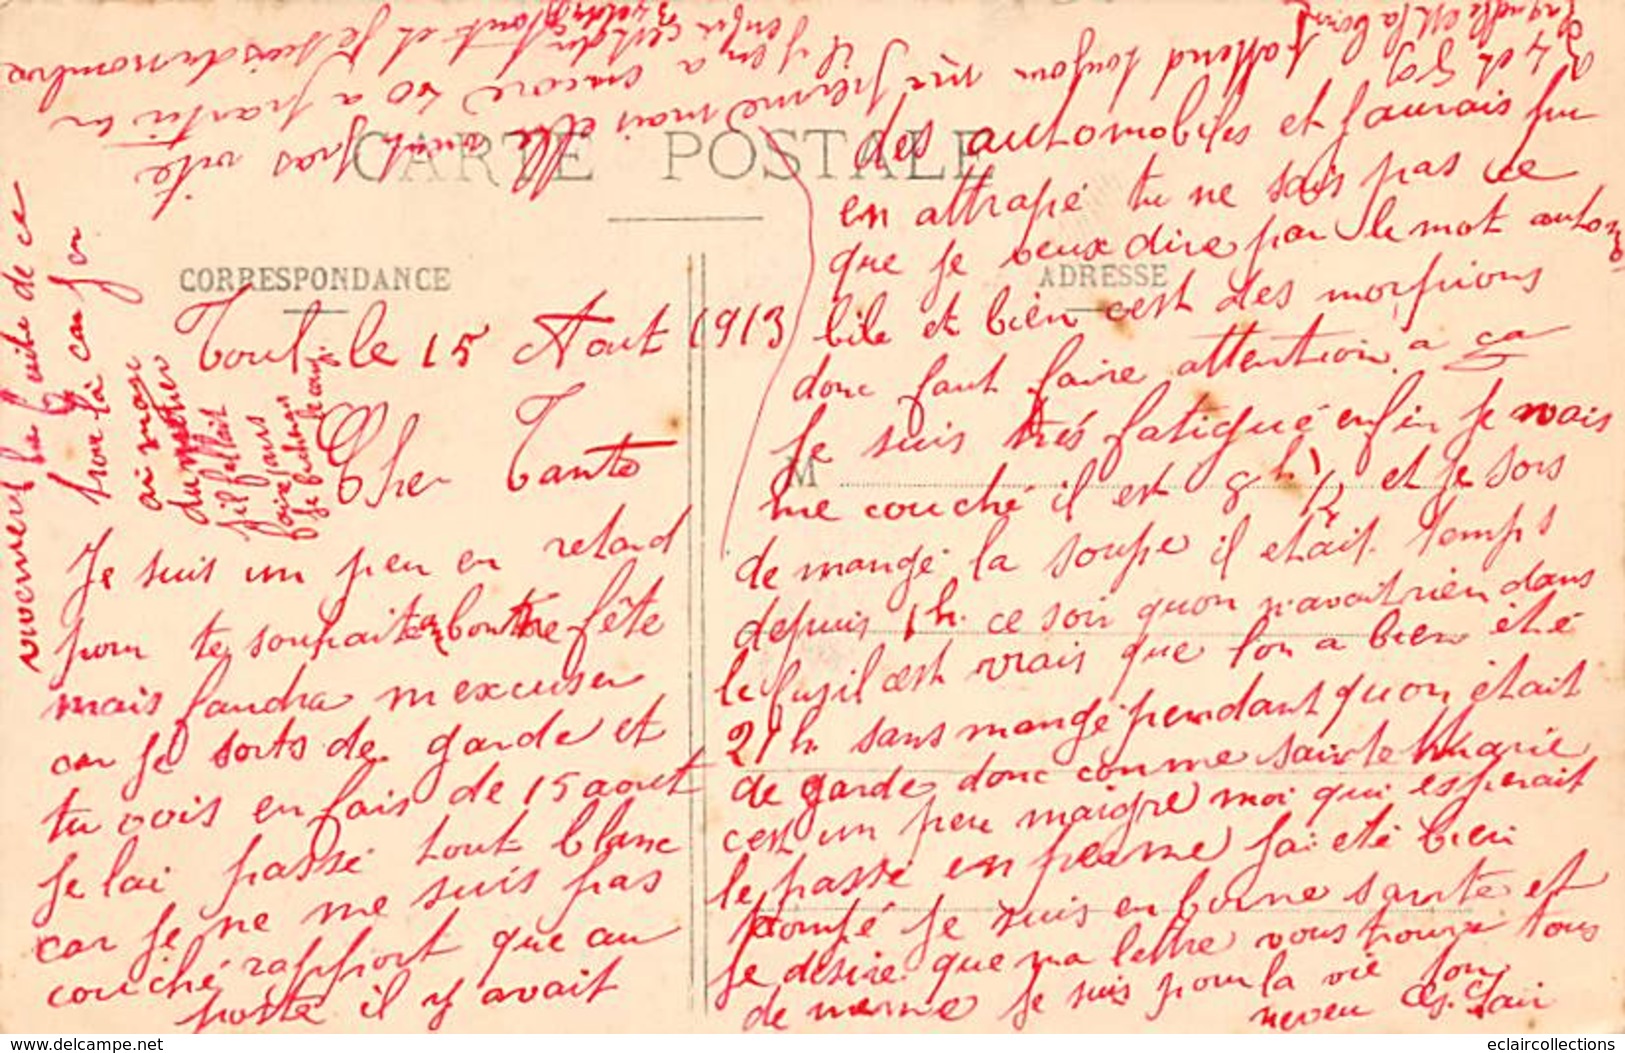 CARTE POSTALE
CORRESPONDANCE
ADRESSE
M
Toul. le 15 Aout 1913
Cher Tante
Je suis un peu en retard
pour te souhaite bonne fête
mais faudra m excuser
car je sorts de garde et
tu vois en fais de 15 aout
je lai passé tout blanc
car je ne me suis pas
couché rapport que au
poste il y avait
des automobiles et jaurais pu
en attrapé tu ne sais pas ce
que je veux dire par le mot automo
bile et bien cest des morpions
donc faut faire attention a ça
Je suis trés fatigué enfin je vais
me couché il est 8h 1/2 et je sors
de mangé la soupe il etait temps
depuis 1h. ce soir quon n'avait rien dans
le fusil cest vrais que lon a bien été
21h. sans mangé pendant quon était
de garde donc comme sainte Marie
cest un peu maigre moi qui esperait
le passé en perme jai eté bien
pompé je suis en bonne santé et
je desire que ma lettre vous trouve tous
de meme je suis pour la vie ton
neveu
jattend toujour ma perme mais elle vient pas vite
il y en a encore 40 a partir
et je suis du nombre
vivement la fuite de ce